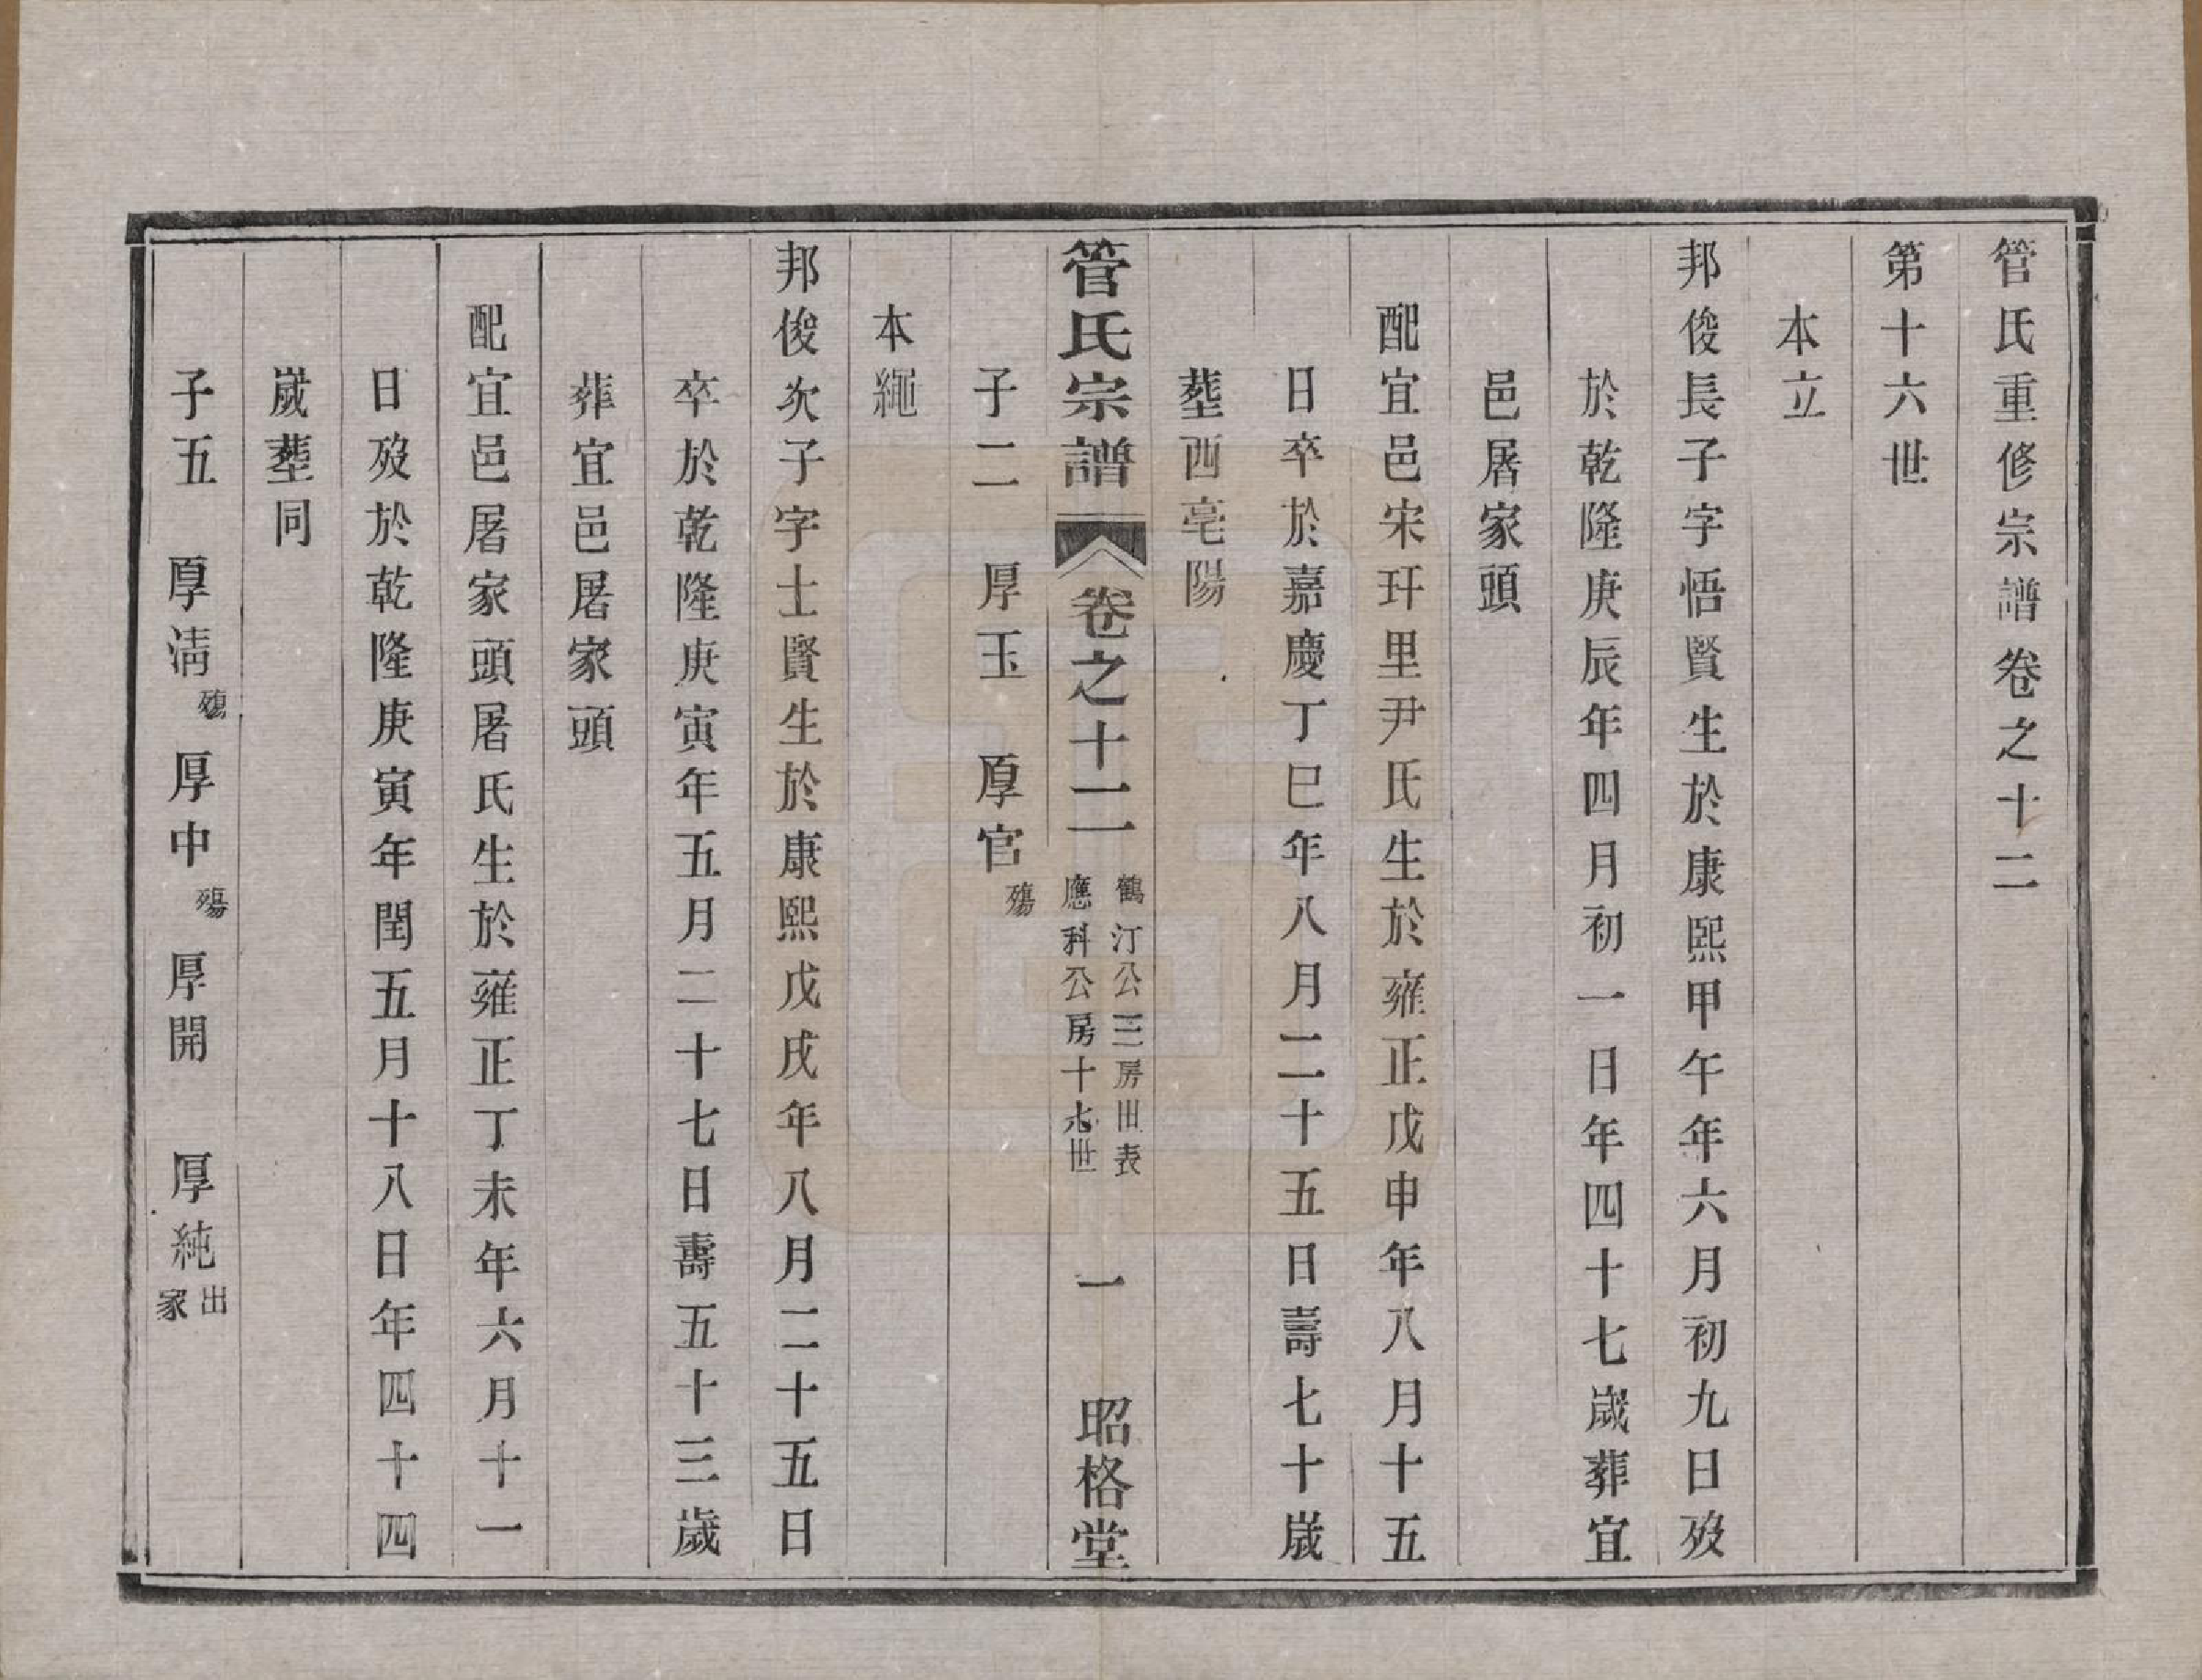 管氏重修宗譜卷之十二
第十六世
本立
邦俊長子字悟賢生於康熙甲午年六月初九日歿
於乾隆庚辰年四月初一日年四十七歲葬宜
邑屠家頭
配宜邑宋玕里尹氏生於雍正戊申年八月十五
日卒於嘉慶丁巳年八月二十五日壽七十歲
塟西亳陽
子二 厚玉 厚官殤
管氏宗譜 卷之十二 鶴汀公三房世表 應科公房十六世 一 昭格堂
本繩
邦俊次子字士賢生於康熙戊戌年八月二十五日
卒於乾隆庚寅年五月二十七日壽五十三歲
葬宜邑屠家頭
配宜邑屠家頭屠氏生於雍正丁未年六月十一
日歿於乾隆庚寅年閏五月十八日年四十四
歲塟同
子五 厚淸殤 厚中殤 厚開 厚純出家